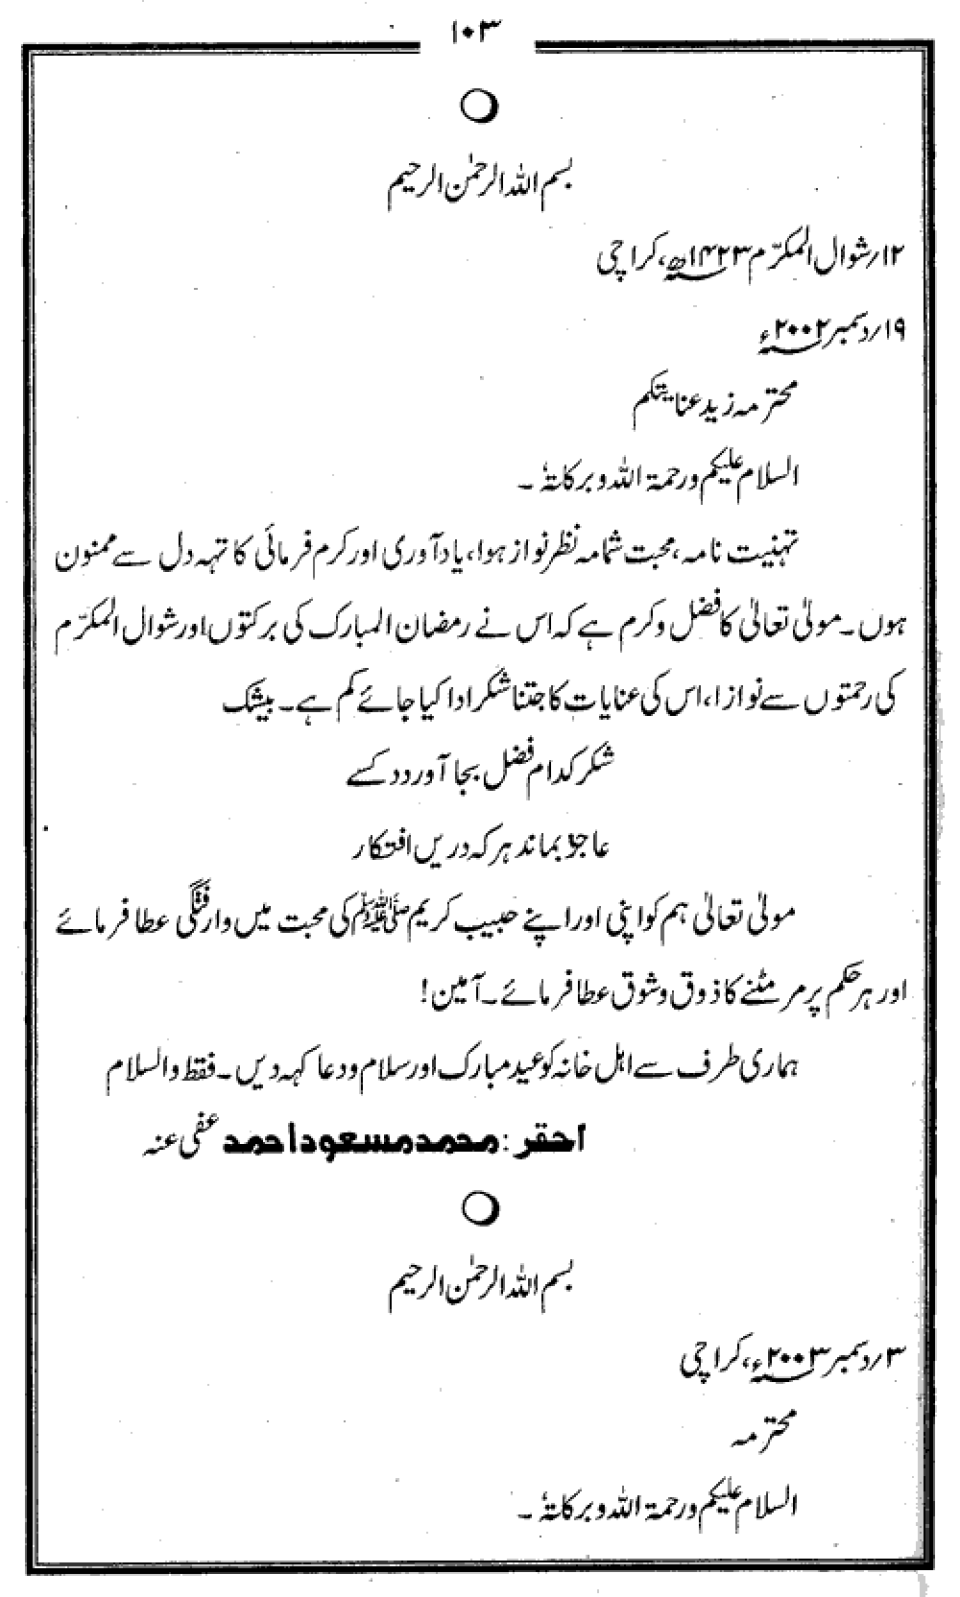 ۱۰۳
بسم اللہ الرحمٰن الرحیم
۱۲/شوال المکرّم ۱۴۲۳ھ، کراچی
۱۹/دسمبر ۲۰۰۲ء
محترمہ زید عنایتکم
السلام علیکم ورحمۃ اللہ وبرکاتہٗ۔
تہنیت نامہ، محبت شمامہ نظر نواز ہوا، یاد آوری اور کرم فرمائی کا تہہ دل سے ممنون
ہوں۔ مولیٰ تعالیٰ کا فضل و کرم ہے کہ اس نے رمضان المبارک کی برکتوں اور شوال المکرّم
کی رحمتوں سے نوازا، اس کی عنایات کا جتنا شکر ادا کیا جائے کم ہے۔ بیشک
شکر کدام فضل بجا آورد دکسے
عاجز بماند ہر کہ دریں افتکار
مولیٰ تعالیٰ ہم کو اپنی اور اپنے حبیب کریم ﷺ کی محبت میں وارفتگی عطا فرمائے
اور ہر حکم پر مر مٹنے کا ذوق و شوق عطا فرمائے۔ آمین!
ہماری طرف سے اہل خانہ کو عید مبارک اور سلام و دعا کہہ دیں۔ فقط والسلام
احقر: محمد مسعود احمد عفی عنہ
بسم اللہ الرحمٰن الرحیم
۳/دسمبر ۲۰۰۳ء، کراچی
محترمہ
السلام علیکم ورحمۃ اللہ وبرکاتہٗ۔